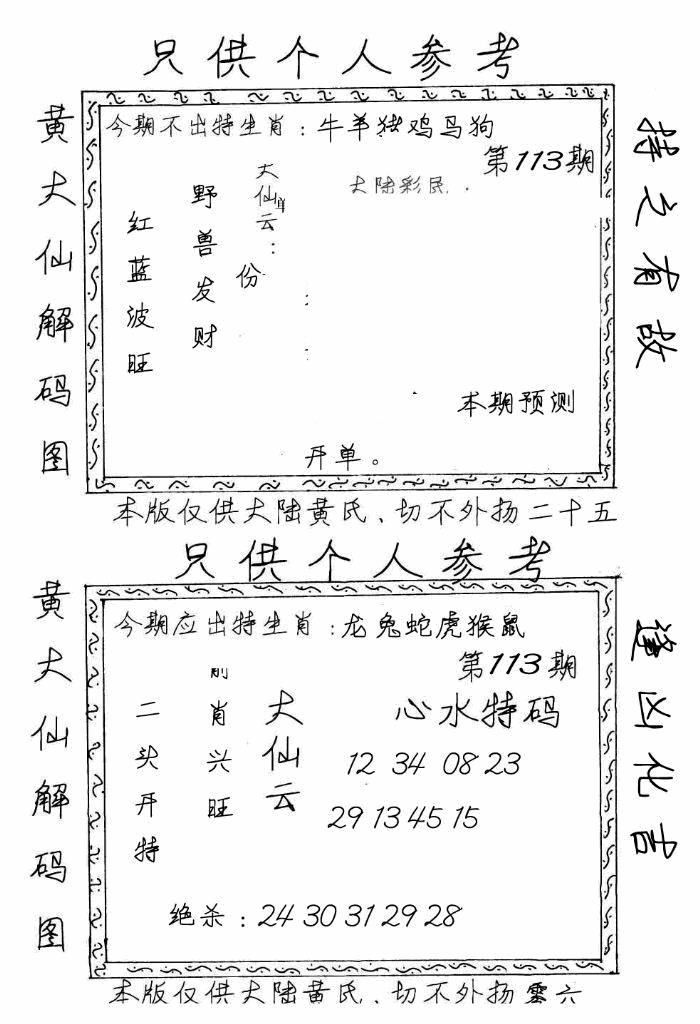 只供个人参考
黄大仙解码图
今期不出特生肖：牛羊猪鸡马狗
第113期
大陆彩民.
大仙单云：
份
野兽发财
红蓝波旺
本期预测
开单。
持之有故
本版仅供大陆黄氏、切不外扬二十五
只供个人参考
黄大仙解码图
今期应出特生肖：龙兔蛇虎猴鼠
第113期
心水特码
大仙云
前肖兴旺
二头开特
12 34 08 23
29 13 45 15
绝杀：24 30 31 29 28
逢凶化吉
本版仅供大陆黄氏、切不外扬零六